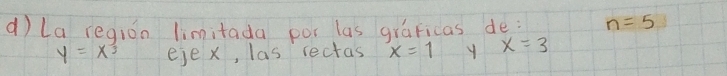 d) La región limitada por las gráficas de: n=5
y = x³ eje x, las rectas x = 1 y x = 3